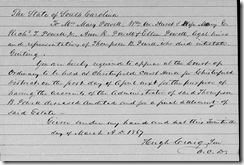 The State of South Carolina
To Mrs Mary Powell, Wm W. Hurst & Wife Mary C.
Rich'd T. Powell Jur Ann R. Powell & Ellen Powell, legal heirs
and representatives of Thompson B. Powell who died intestate
Greeting:
You are hereby required to appear at the Court of
Ordinary to be held at Chesterfield Court House for Chesterfield
District on the day of April next for the purpose of
having the accounts of the Administrator of said Thompson
B. Powell deceased Audited and for a final settlement of
said Estate.
Given under my hand and seal this twentieth
day of March A.D. 1867
Hugh Craig Jur
O.C.D.